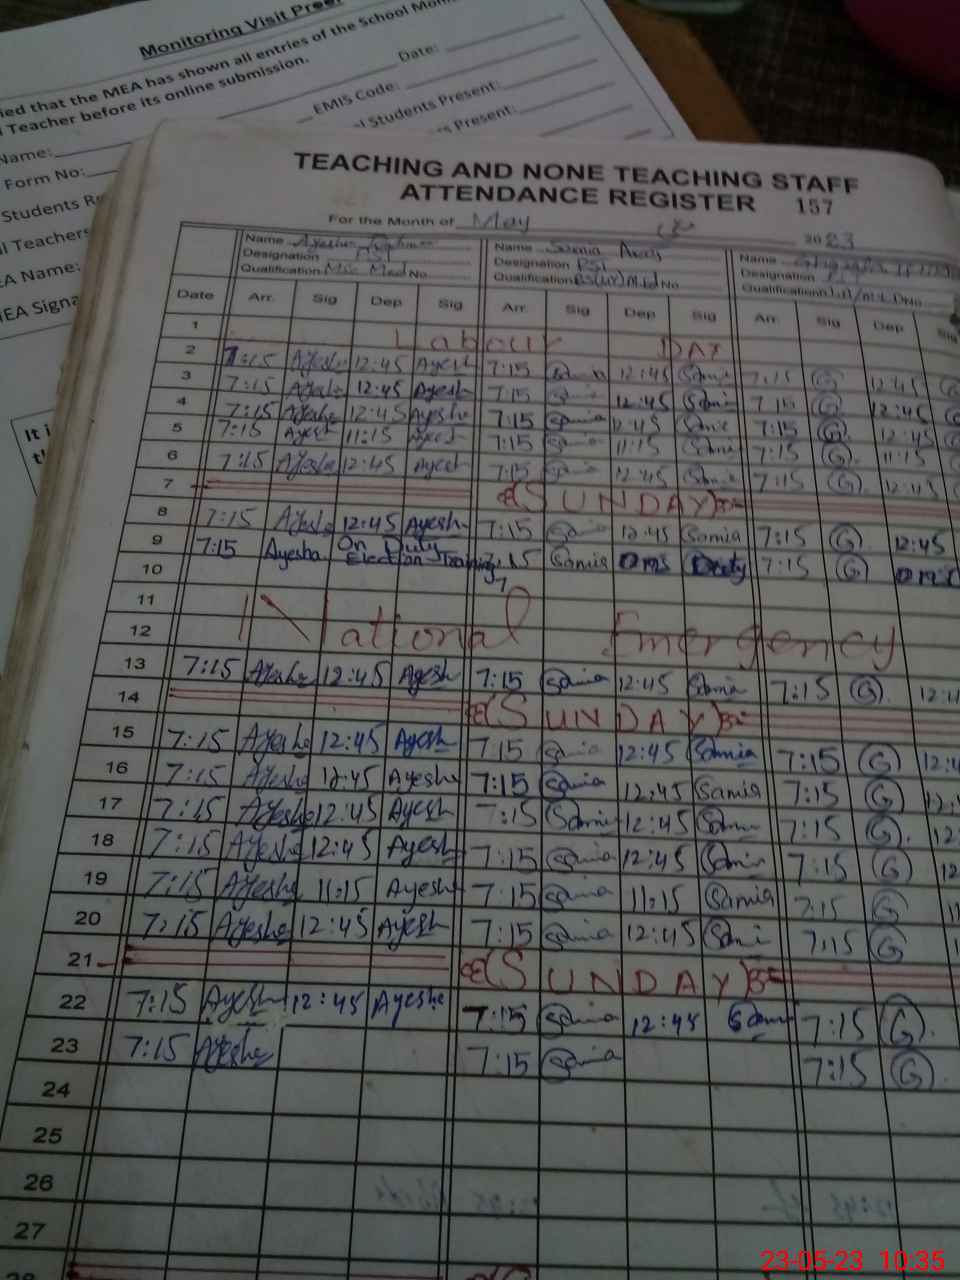 Monitoring Visit
ied that the MEA has shown all entries of the School
Teacher before its online submission.
Date:
Name:
EMIS Code:
Form No:
Students Present:
Students
Present:
Teachers
EA Name:
EA Signa
It i
TEACHING AND NONE TEACHING STAFF
ATTENDANCE REGISTER 157
For the Month of May 2023
Name Ayesha Name Samia Name
Designation PST Designation PST Designation
Qualification MSc Med No. Qualification No Qualification No
Date Arr. Sig Dep Sig Arr. Sig Dep Sig Arr. Sig Dep
1 Labour DAY
2 7:15 Ayesha 12:45 Ayesh 7:15 Samia 12:45 Samia 7:15 G 12:45
3 7:15 Ayesha 12:45 Ayesh 7:15 Samia 12:45 Samia 7:15 G 12:45
4 7:15 Ayesha 12:45 Ayesha 7:15 Samia 12:45 Samia 7:15 G 12:45
5 7:15 Ayesh 11:15 Ayesh 7:15 Samia 11:15 Samia 7:15 G 11:15
6 7:15 Ayesha 12:45 Ayesh 7:15 Samia 12:45 Samia 7:15 G 12:45
7 (SUNDAY)
8 7:15 Ayesha 12:45 Ayesh 7:15 Samia 12:45 Samia 7:15 G 12:45
9 7:15 Ayesha On Duty Election Training 7:15 Samia On Duty 7:15 G On
10
11 National Emergency
12
13 7:15 Ayesha 12:45 Ayesh 7:15 Samia 12:45 Samia 7:15 G 12:4
14 (SUNDAY)
15 7:15 Ayesha 12:45 Ayesh 7:15 Samia 12:45 Samia 7:15 G 12:4
16 7:15 Ayesha 12:45 Ayesha 7:15 Samia 12:45 Samia 7:15 G 12:
17 7:15 Ayesha 12:45 Ayesh 7:15 Samia 12:45 Samia 7:15 G 12:
18 7:15 Ayesha 12:45 Ayesh 7:15 Samia 12:45 Samia 7:15 G 12
19 7:15 Ayesha 11:15 Ayesha 7:15 Samia 11:15 Samia 7:15 G 11
20 7:15 Ayesha 12:45 Ayesh 7:15 Samia 12:45 Sami 7:15 G 1
21 (SUNDAY)
22 7:15 Ayesh 12:45 Ayesha 7:15 Samia 12:45 Sami 7:15 G
23 7:15 Ayesha 7:15 Samia 7:15 G
24
25
26
27
28
23-05-23 10:35